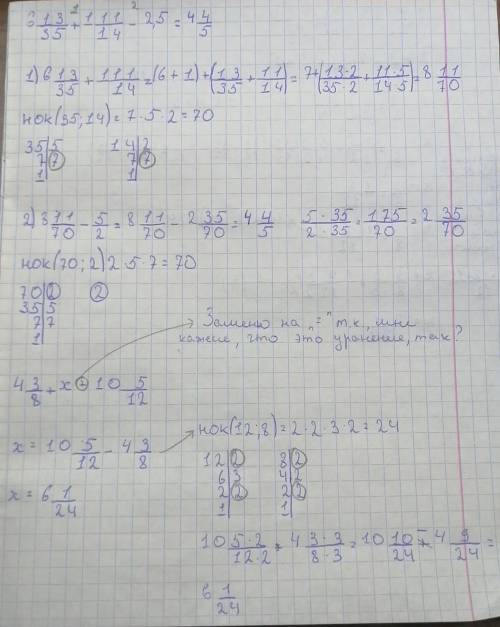 6 13/35 + 1 11/14 - 2,5 = 4 4/5
1) 6 13/35 + 1 11/14 = (6 + 1) + (13/35 + 11/14) = 7 + (13·2/35·2 + 11·5/14·5) = 8 11/70
нок(35,14) = 7·5·2 = 70
35|5 14|2
7|7 7|7
1| 1|
2) 8 11/70 - 5/2 = 8 11/70 - 2 35/70 = 4 4/5 5·35/2·35 = 175/70 = 2 35/70
нок(70;2) 2·5·7 = 70
70|2 2
35|5
7|7
1|
Заменю на "=" т.к., мне
кажеця, что это уранение, так?
4 3/8 + x = 10 5/12
x = 10 5/12 - 4 3/8
x = 6 1/24
нок(12;8) = 2·2·3·2 = 24
12|2 8|2
6|3 4|2
2|2 2|2
1| 1|
10 5·2/12·2 - 4 3·3/8·3 = 10 10/24 - 4 9/24 =
6 1/24